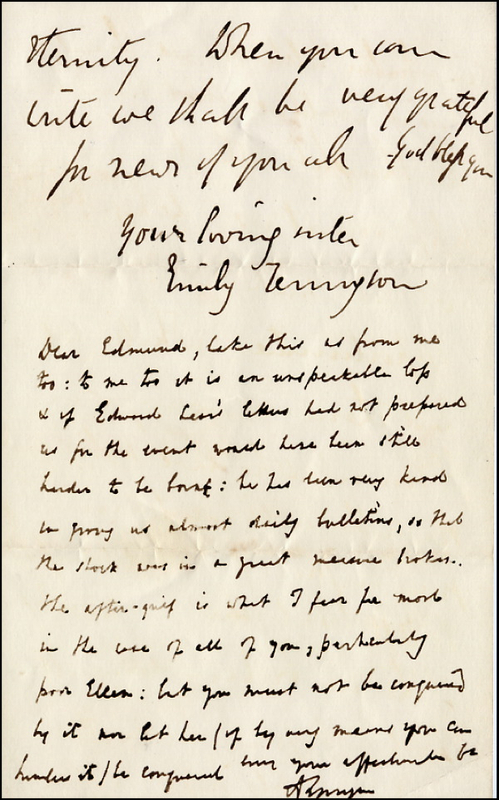 eternity. When you can
write we shall be very grateful
for news of you all God bless you
Your loving sister
Emily Tennyson
Dear Edmund, take this as from me
too: to me too it is an unspeakable loss
& if Edward Lear's letters had not prepared
us for the event would have been still
harder to be borne: he has been very kind
in giving us almost daily bulletins, so that
the shock was in a great measure broken.
the after-grief is what I fear for most
in the case of all of you, particularly
poor Ellen: but you must not be conquered
by it nor let her (if by any means you can
hinder it) be conquered ever your affectionate br
ATennyson